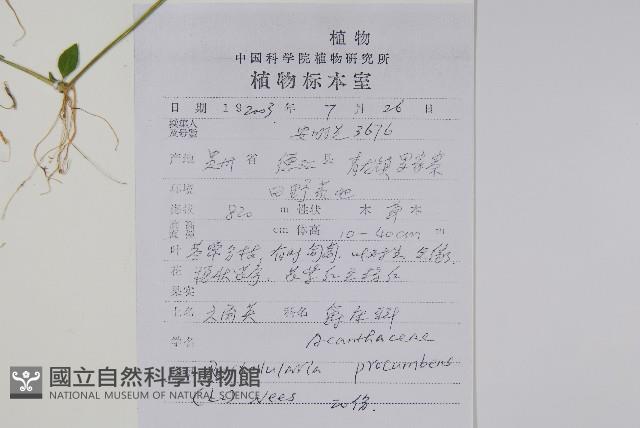 植物
中国科学院植物研究所
植物标本室
日期 19 2003 年 7 月 26 日
采集人
及号数 安明先 3676
产地 贵州 省 德江 县 青龙镇
环境 田野草地
海拔 820 m 性状 木 草本
cm 体高 10-40cm m
叶 茎多分枝,有时匍匐,叶对生,全缘.
花 穗状花序,
果实
土名 六角英 科名 爵床科
学名 Acanthaceae
Rungia procumbens
(L.) Nees 20份.
國立自然科學博物館
NATIONAL MUSEUM OF NATURAL SCIENCE